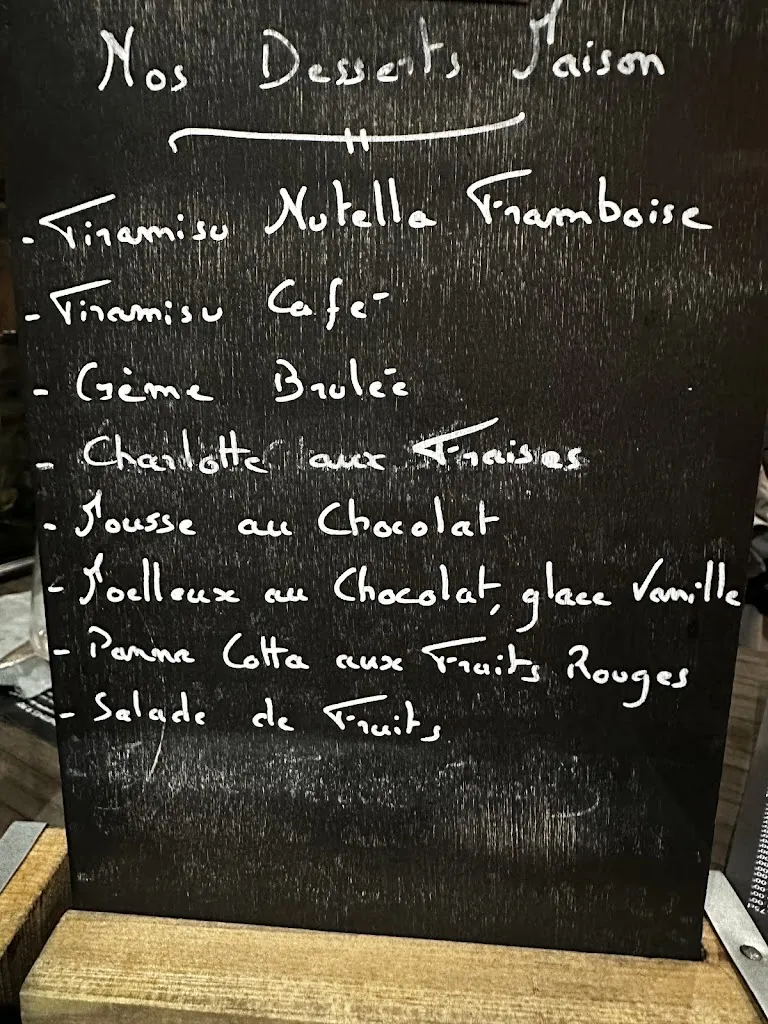 Nos Desserts Maison
- Tiramisu Nutella Framboise
- Tiramisu Café
- Crème Brulée
- Charlotte aux Fraises
- Mousse au Chocolat
- Moelleux au Chocolat, glace Vanille
- Panna Cotta aux Fruits Rouges
- Salade de Fruits